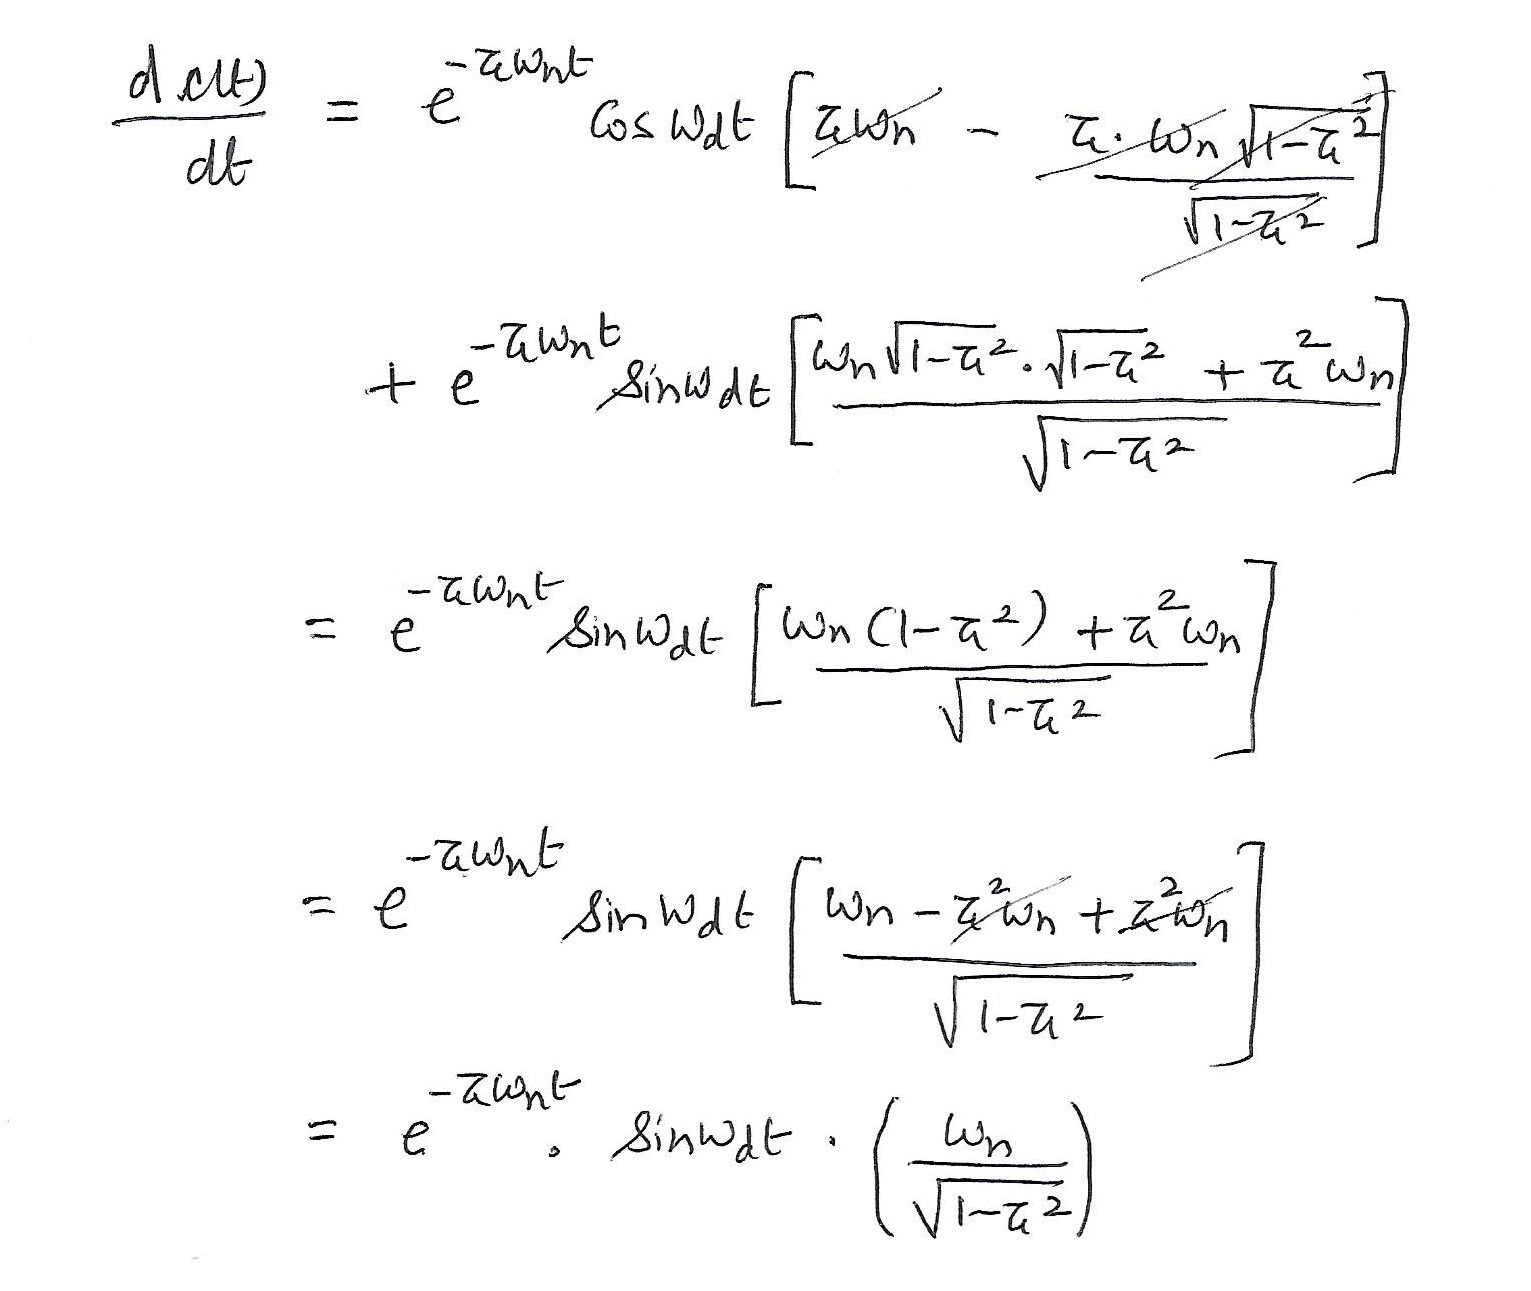 d c(t)/dt = e^{-ζωnt} cos ωdt [ζωn - ζ·ωn√(1-ζ²)/√(1-ζ²)]
+ e^{-ζωnt} sin ωdt [(ωn√(1-ζ²)·√(1-ζ²) + ζ²ωn)/√(1-ζ²)]
= e^{-ζωnt} sin ωdt [(ωn(1-ζ²) + ζ²ωn)/√(1-ζ²)]
= e^{-ζωnt} sin ωdt [(ωn - ζ²ωn + ζ²ωn)/√(1-ζ²)]
= e^{-ζωnt} · sin ωdt · (ωn/√(1-ζ²))